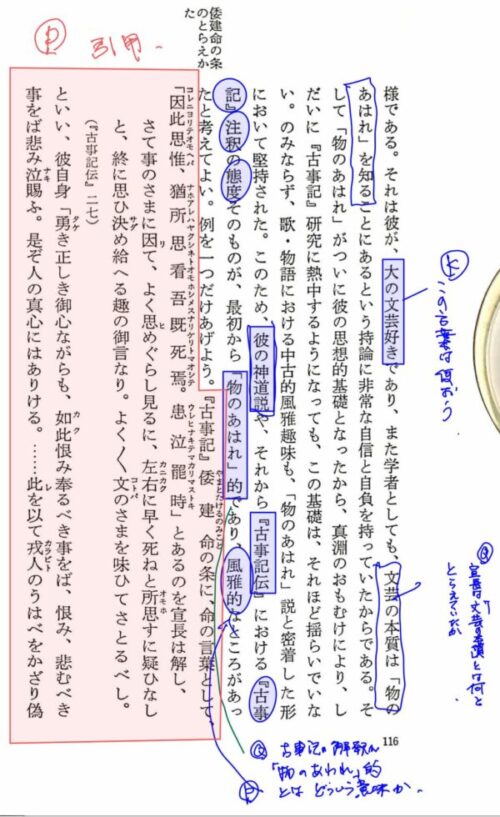 この言葉は何だろう
宣長は文芸の本質とは何と
とらえていたか
様である。それは彼が、大の文芸好きであり、また学者としても、文芸の本質は「物の
あはれ」を知ることにあるという持論に非常な自信と自負を持っていたからである。そ
して「物のあはれ」がついに彼の思想的基礎となったから、真淵のおもむけにより、し
だいに『古事記』研究に熱中するようになっても、この基礎は、それほど揺らいでいな
い。のみならず、歌・物語における中古的風雅趣味も、「物のあはれ」説と密着した形
において堅持された。このため、彼の神道説や、それから『古事記伝』における『古事
記』注釈の態度そのものが、最初から「物のあはれ」的であり、風雅的なところがあっ
たと考えてよい。例を一つだけあげよう。『古事記』倭建命の条に、命の言葉として
「因此思惟、猶所思看吾既死焉。患泣罷時」とあるのを宣長は解し、
さて事のさまに因て、よく思めぐらし見るに、左右に早く死ねと所思すに疑ひなし
と、終に思ひ決め給へる趣の御言なり。よく〱文のさまを味ひてさとるべし。
(『古事記伝』二七)
といい、彼自身「勇き正しき御心ながらも、如此恨み奉るべき事をば、恨み、悲むべき
事をば悲み泣賜ふ。是ぞ人の真心にはありける。……此を以て戎人のうはべをかざり偽
倭建命の条
のとらえか
た
引用
116
古事記の解釈が
「物のあわれ」的
とはどういう意味か。